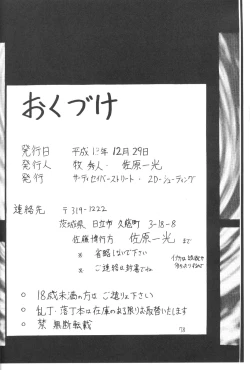 おくづけ
発行日 平成12年12月29日
発行人 牧 秀人・佐原一光
発行 サーティセイバーストリート・2D・シューティング
連絡先 〒319-1222
茨城県 日立市 久慈町 3-18-8
佐藤博行方 佐原一光 まで
※ 省略しないで下さい
※ ご連絡は封書でね
○ 18歳未満の方は ご遠りょ下さい
○ 乱丁・落丁本は在庫のある限りお取替いたします
○ 禁 無断転載
78